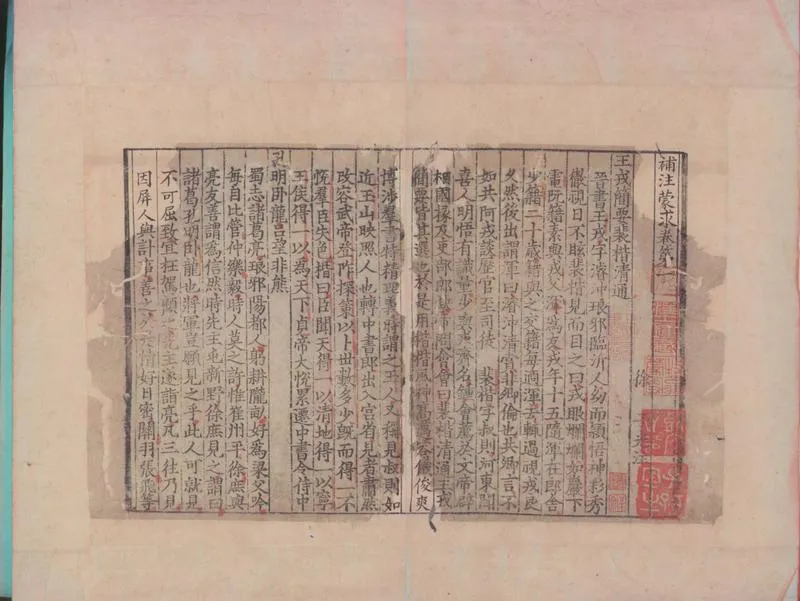 補注蒙求卷第一
徐
王戎簡要裴楷清通
晉書王戎字濬冲琅邪臨沂人幼而頴悟神彩秀
徹視日不眩裴楷見而目之曰戎眼爛爛如巖下
電阮籍素與戎父渾為友戎年十五隨渾在郎舍
少籍二十歲籍與之交籍每適渾去輙過視戎良
久然後出謂渾曰濬沖清賞非卿倫也共卿言不
如共阿戎談歷官至司徒 裴楷字叔則河東聞
喜人明悟有識量少與戎齊名鍾會薦於文帝辟
相國掾及吏部郎缺帝問會會曰裴楷清通王戎
簡要皆其選也於是用楷楷風神高邁容儀俊爽
博涉羣書特精理義時謂之玉人又稱見叔則如
近玉山映照人也轉中書郎出入宮省見者肅然
改容武帝登阼探策以卜世數多少旣而得一不
悅羣臣失色楷曰臣聞天得一以清地得一以寧
王侯得一以為天下貞帝大悅累遷中書令侍中
孔明卧龍呂望非熊
蜀志諸葛亮琅邪陽都人躬耕隴畝好為梁父吟
每自比管仲樂毅時人莫之許惟崔州平徐庶與
亮友善謂為信然時先主屯新野徐庶見之謂曰
諸葛孔明卧龍也將軍豈願見之乎此人可就見
不可屈致宜枉駕顧之先主遂詣亮凡三往乃見
因屏人與計事善之於是情好日密關羽張飛等